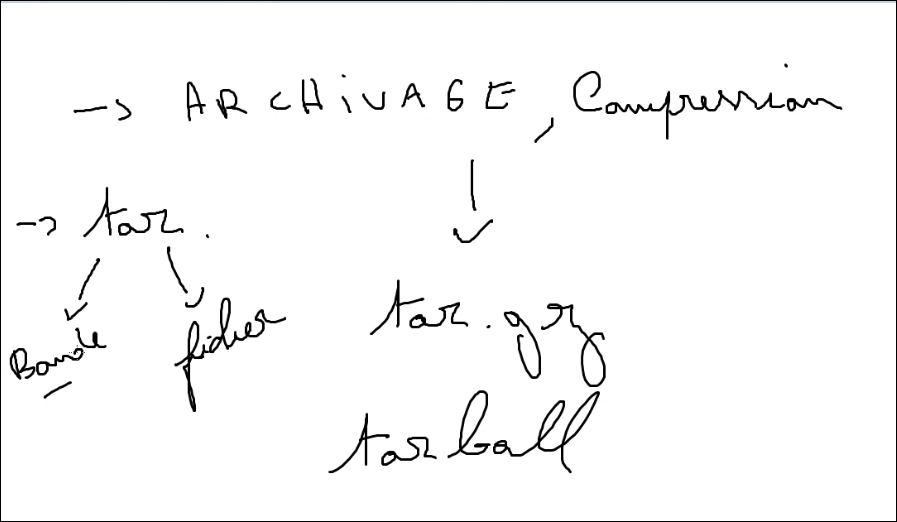 → ARCHIVAGE, Compression
→ tar.
Bande
fichier
tar.gz
tarball